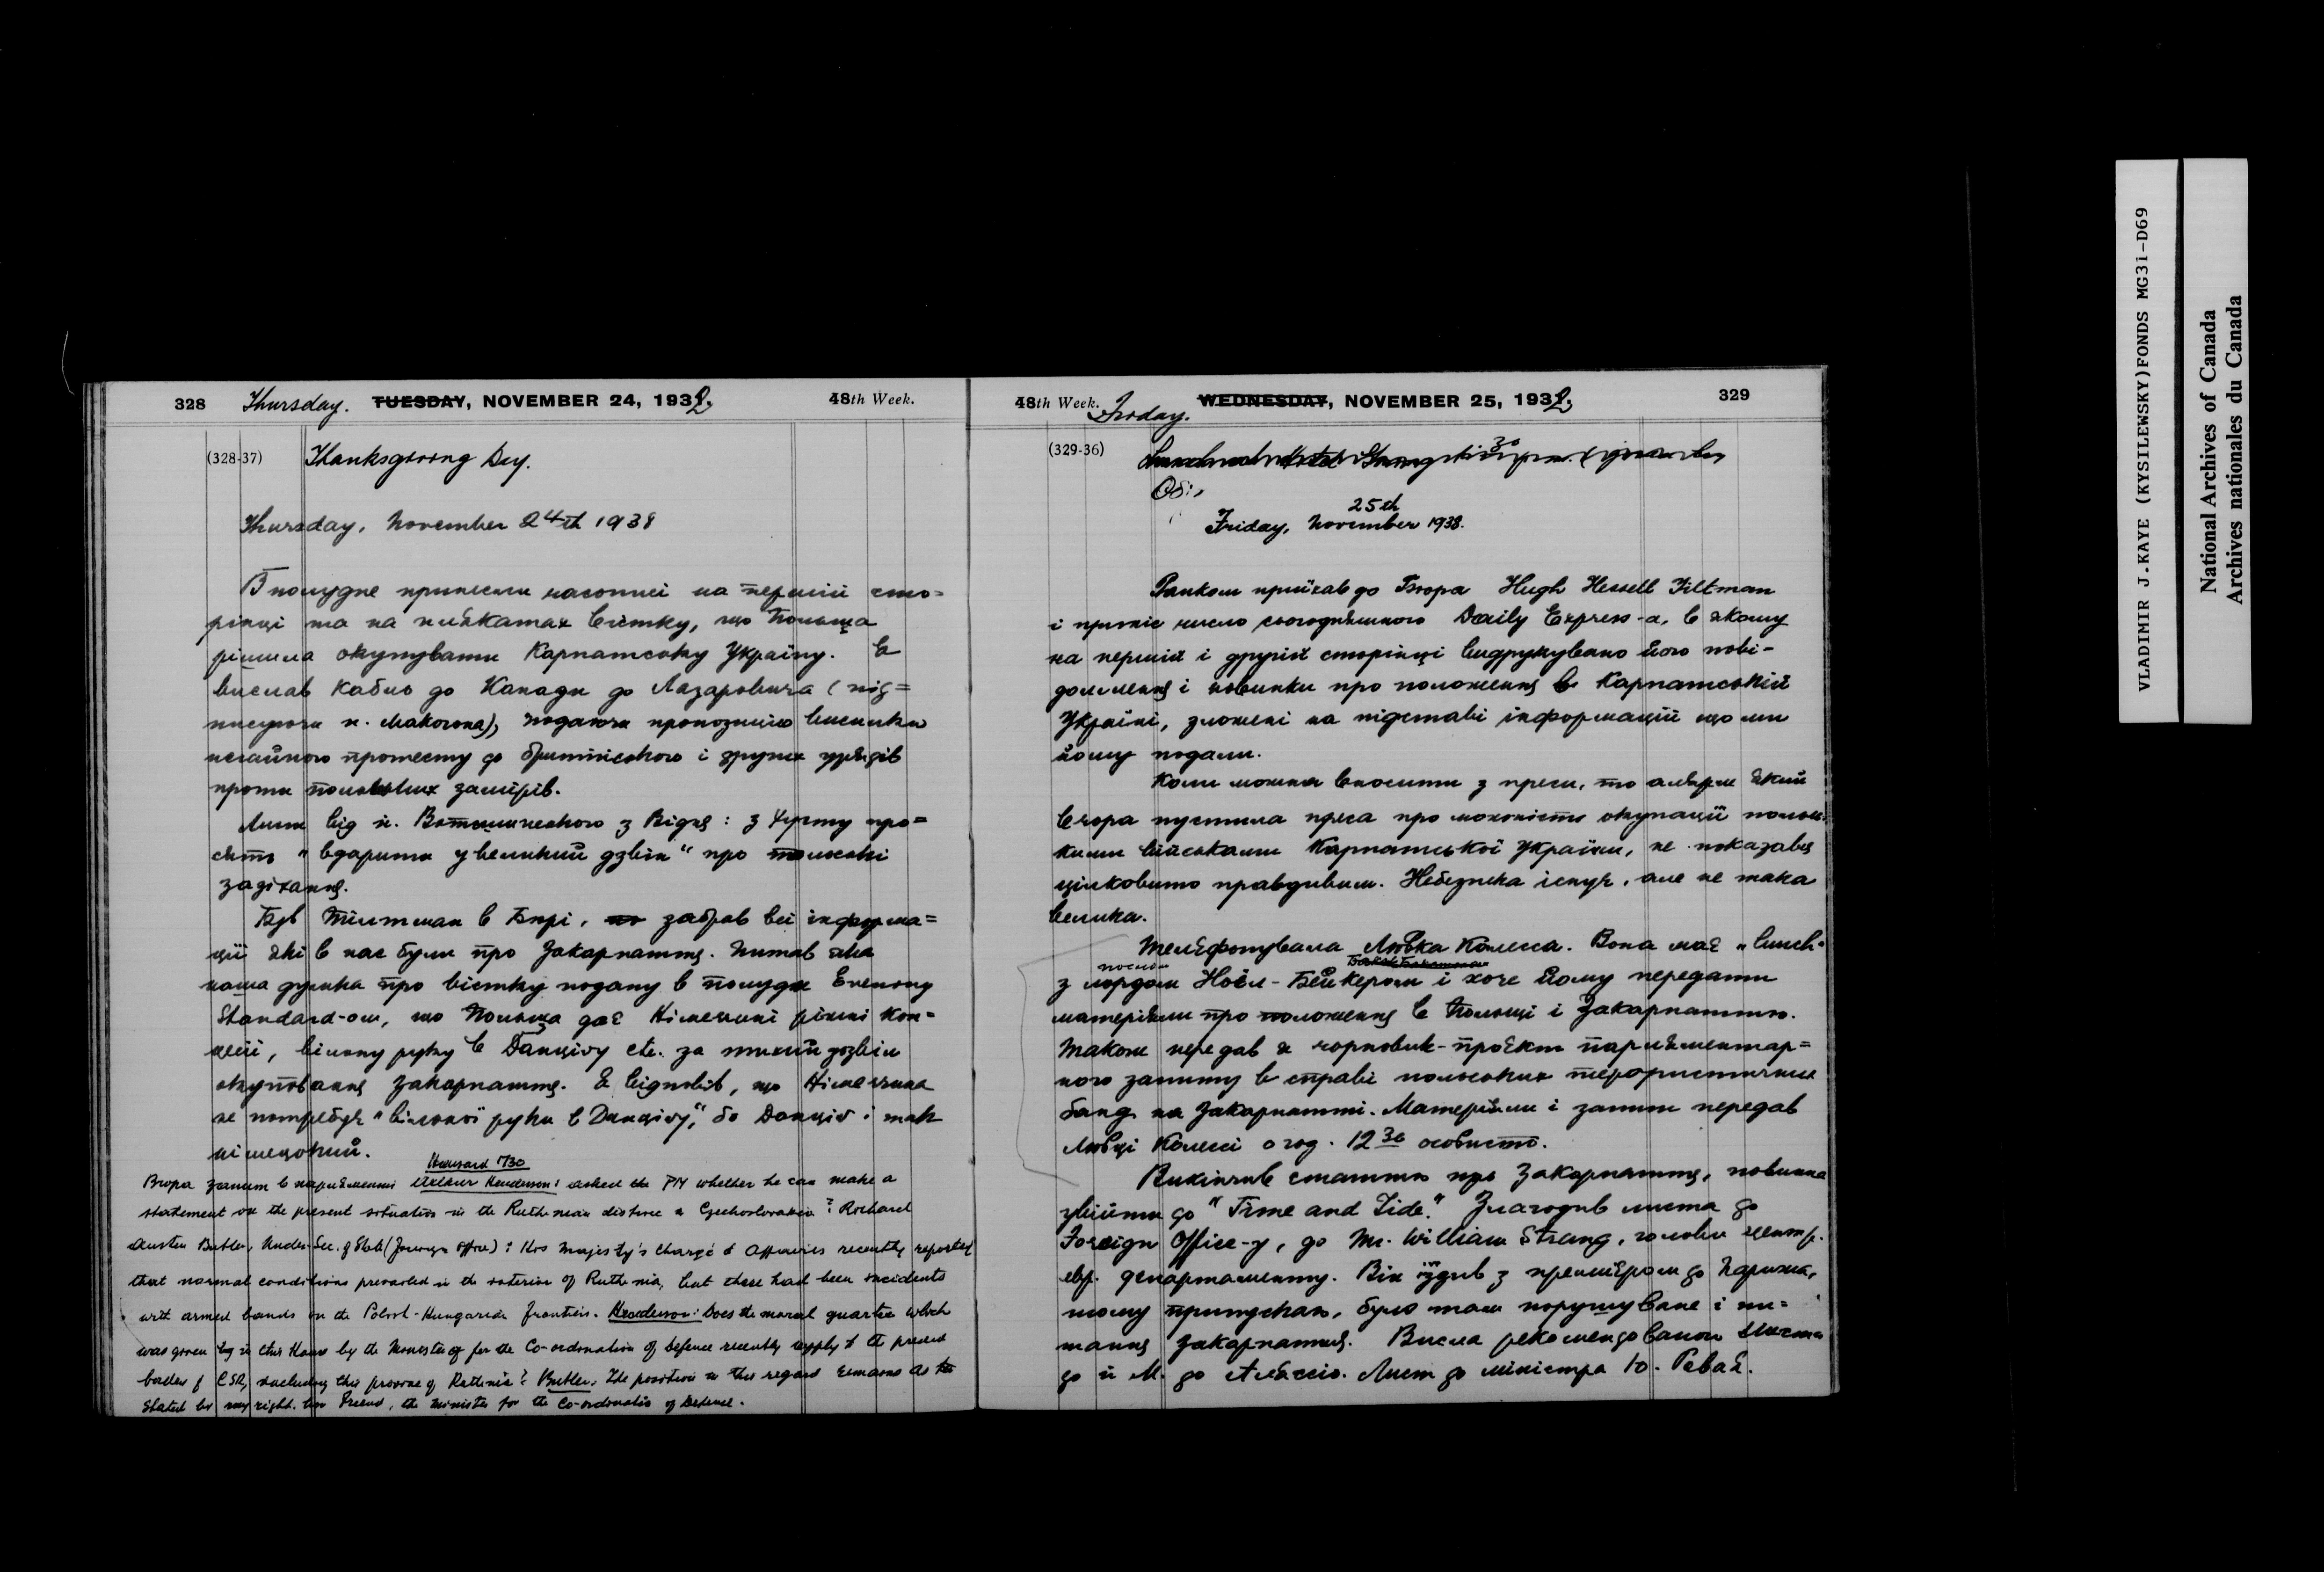 328 Thursday. TUESDAY, NOVEMBER 24, 1932. 48th Week.
(328-37) Thanksgiving Day.
Thursday, November 24th 1938
В полудне принесли часописі на першій сто=
рінці та на плякатах вістку, що Польща
рішила окупувати Карпатську Україну. Я
вислав кабль до Канади до Лазаровича (під=
писуючи п. Макогона), подаючи пропозицію висилки
негайного протесту до британського і других урядів
проти польських замірів.
Лист від п. з Відня: з Хусту про=
сять "вдарити у великий дзвін" про польські
зазіхання.
Був Тілтман в Бюрі, забрав всі інформа=
ції які в нас були про Закарпаття. Питав яка
наша думка про вістку подану в полудне Evening
Standard-ом, що Польща дає Німеччині ріжні кон=
цесії, вільну руку в Данціґу etc. за тихий дозвіл
окуповання Закарпаття. Я відповів, що Німеччина
не потребує "вільної руки в Данціґу," бо Данціґ і так
німецький.
Hansard 1730
Вчора запит в парляменті Arthur Henderson: asked the PM whether he can make a
statement on the present situation in the Ruthenian district in Czechoslovakia? Richard
Austen Butler, Under-Sec. of State (Foreign Office): His Majesty's Chargé d'Affaires recently reported
that normal conditions prevailed in the interior of Ruthenia, but there had been incidents
with armed bands on the Polish-Hungarian frontiers. Henderson: Does the moral guarantee which
was given in this House by the Minister for the Co-ordination of Defence recently apply to the present
borders of CSR, including this province of Ruthenia? Butler: The position in this regard remains as
stated by my right. hon Friend, the Minister for the Co-ordination of Defence.
48th Week. Friday. WEDNESDAY, NOVEMBER 25, 1932. 329
(329-36)
Friday, November 25th 1938.
Ранком приїхав до Бюра Hugh Hessell Tiltman
і приніс число сьогоднішнього Daily Express-а, в якому
на першій і другій сторінці видрукувано його пові-
домлення і новинки про положення в Карпатській
Україні, зложені на підставі інформацій що ми
йому подали.
Коли можна вносити з преси, то алярм який
вчора пустила преса про можність окупації польсь
кими військами Карпатської України, не показався
цілковито правдивим. Небезпека існує, але не така
велика.
Телєфонувала Любка Колесса. Вона має "lunch"
з послом Ноєл-Бейкером і хоче йому передати
матеріяли про положення в Польщі і Закарпаттю.
Також передав я чорновик-проєкт парляментар=
ного запиту в справі польських терористичних
банд на Закарпатті. Матеріяли і запит передав
Любці Колессі о год. 12 30 особисто.
Викінчив статтю про Закарпаття, повинна
увійти до "Time and Tide." Злагодив листа до
Foreign Office-у, до Mr. William Strang, голови центр.
евр. департаменту. Він їздив з премієром до Парижа,
тому припускаю, було там порушуване і пи=
тання Закарпаття. Вислав рекомендованого листа
до п М. до Алясcіо. Лист до міністра Ю. Ревая.
VLADIMIR J.KAYE (KYSILEWSKY)FONDS MG31-D69
National Archives of Canada
Archives nationales du Canada